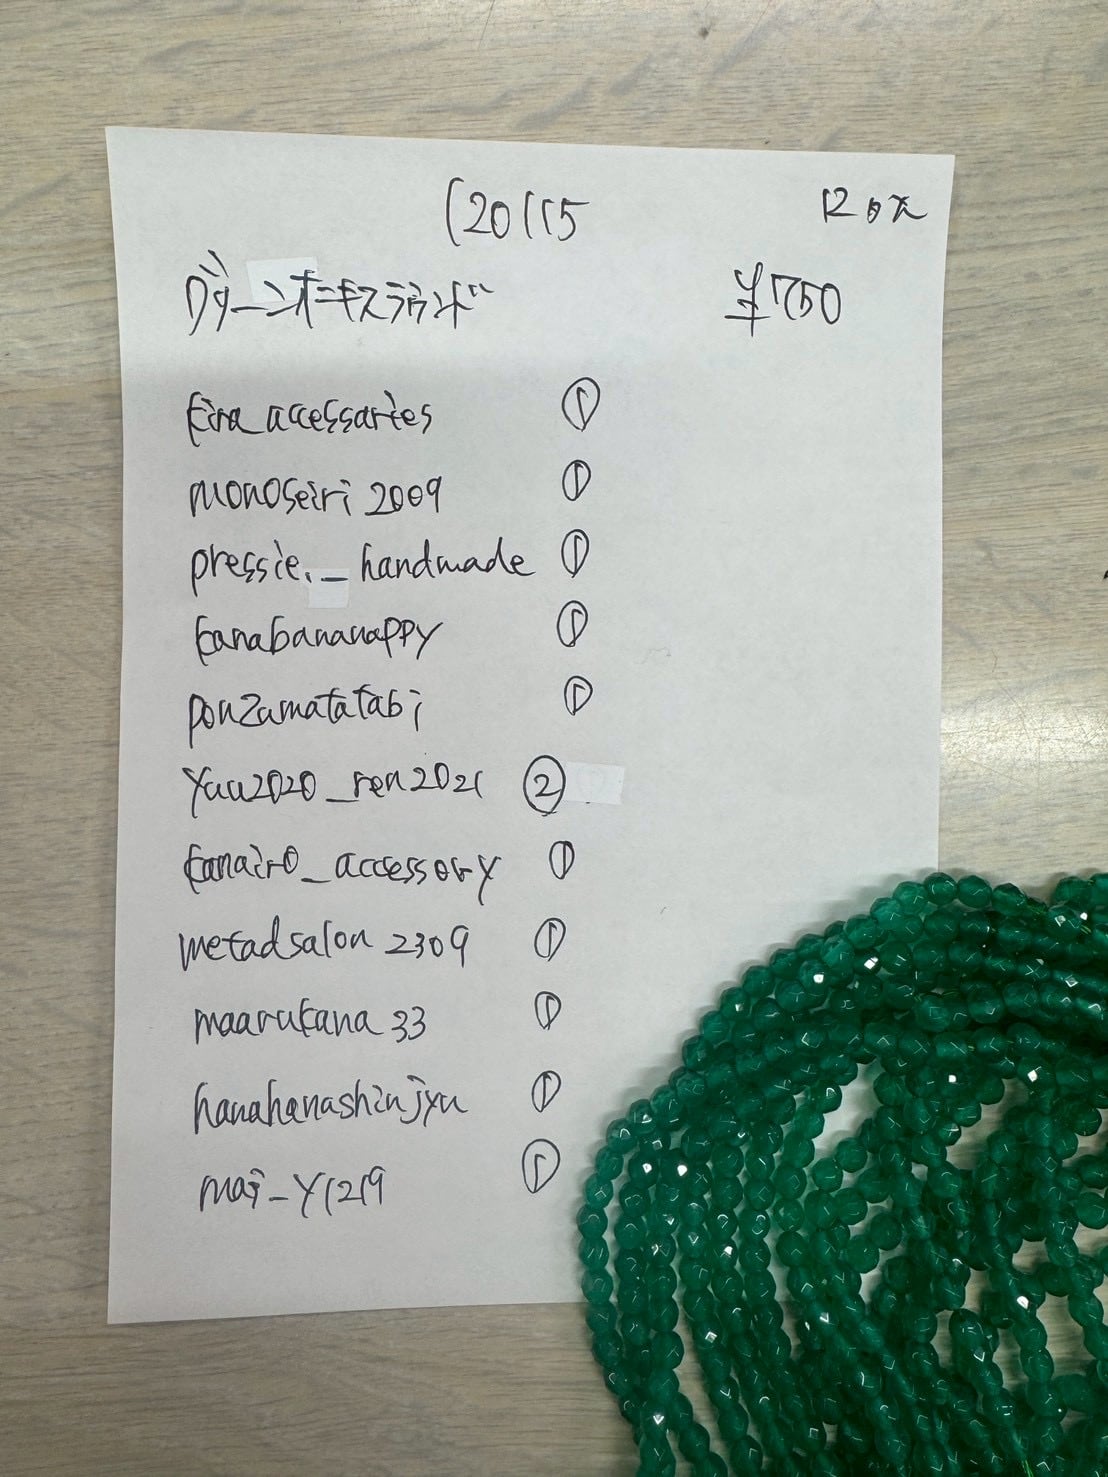 120115
12点
グリーンオニキスラウンド
¥750
kira_accessaries ①
monoseiri2009 ①
pressie._handmade ①
kanabananappy ①
ponzamatatabi ①
yuu2020_ren2021 ②
kanairo_accessory ①
metadsalon2309 ①
maarukana33 ①
hanahanashinjyu ①
mai-y1219 ①